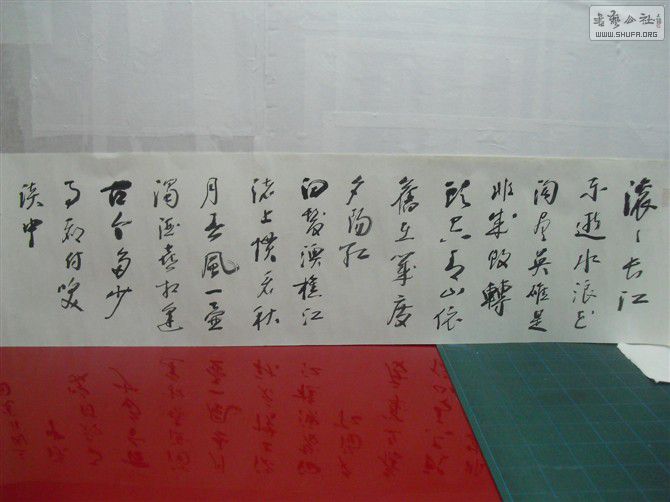 滚〻长江
东逝水浪花
淘尽英雄是
非成败轉
頭空青山依
舊在几度
夕陽红
白髮漁樵江
渚上惯看秋
月春風一壶
濁酒喜相逢
古今多少
事都付笑
谈中
书艺公社
WWW.SHUFA.ORG